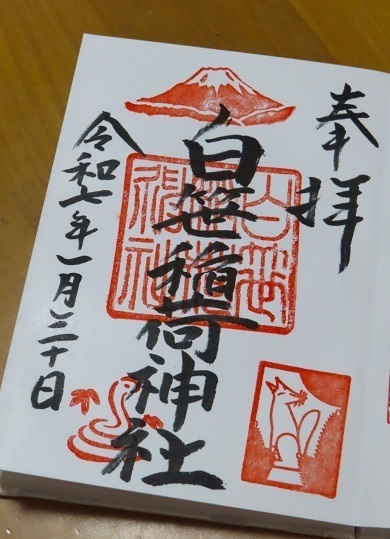 奉拝
白笹稲荷神社
令和七年一月三十日